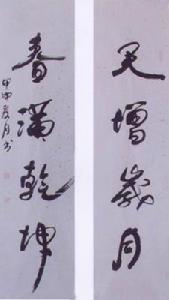 天增歲月
春滿乾坤
甲申夏月书